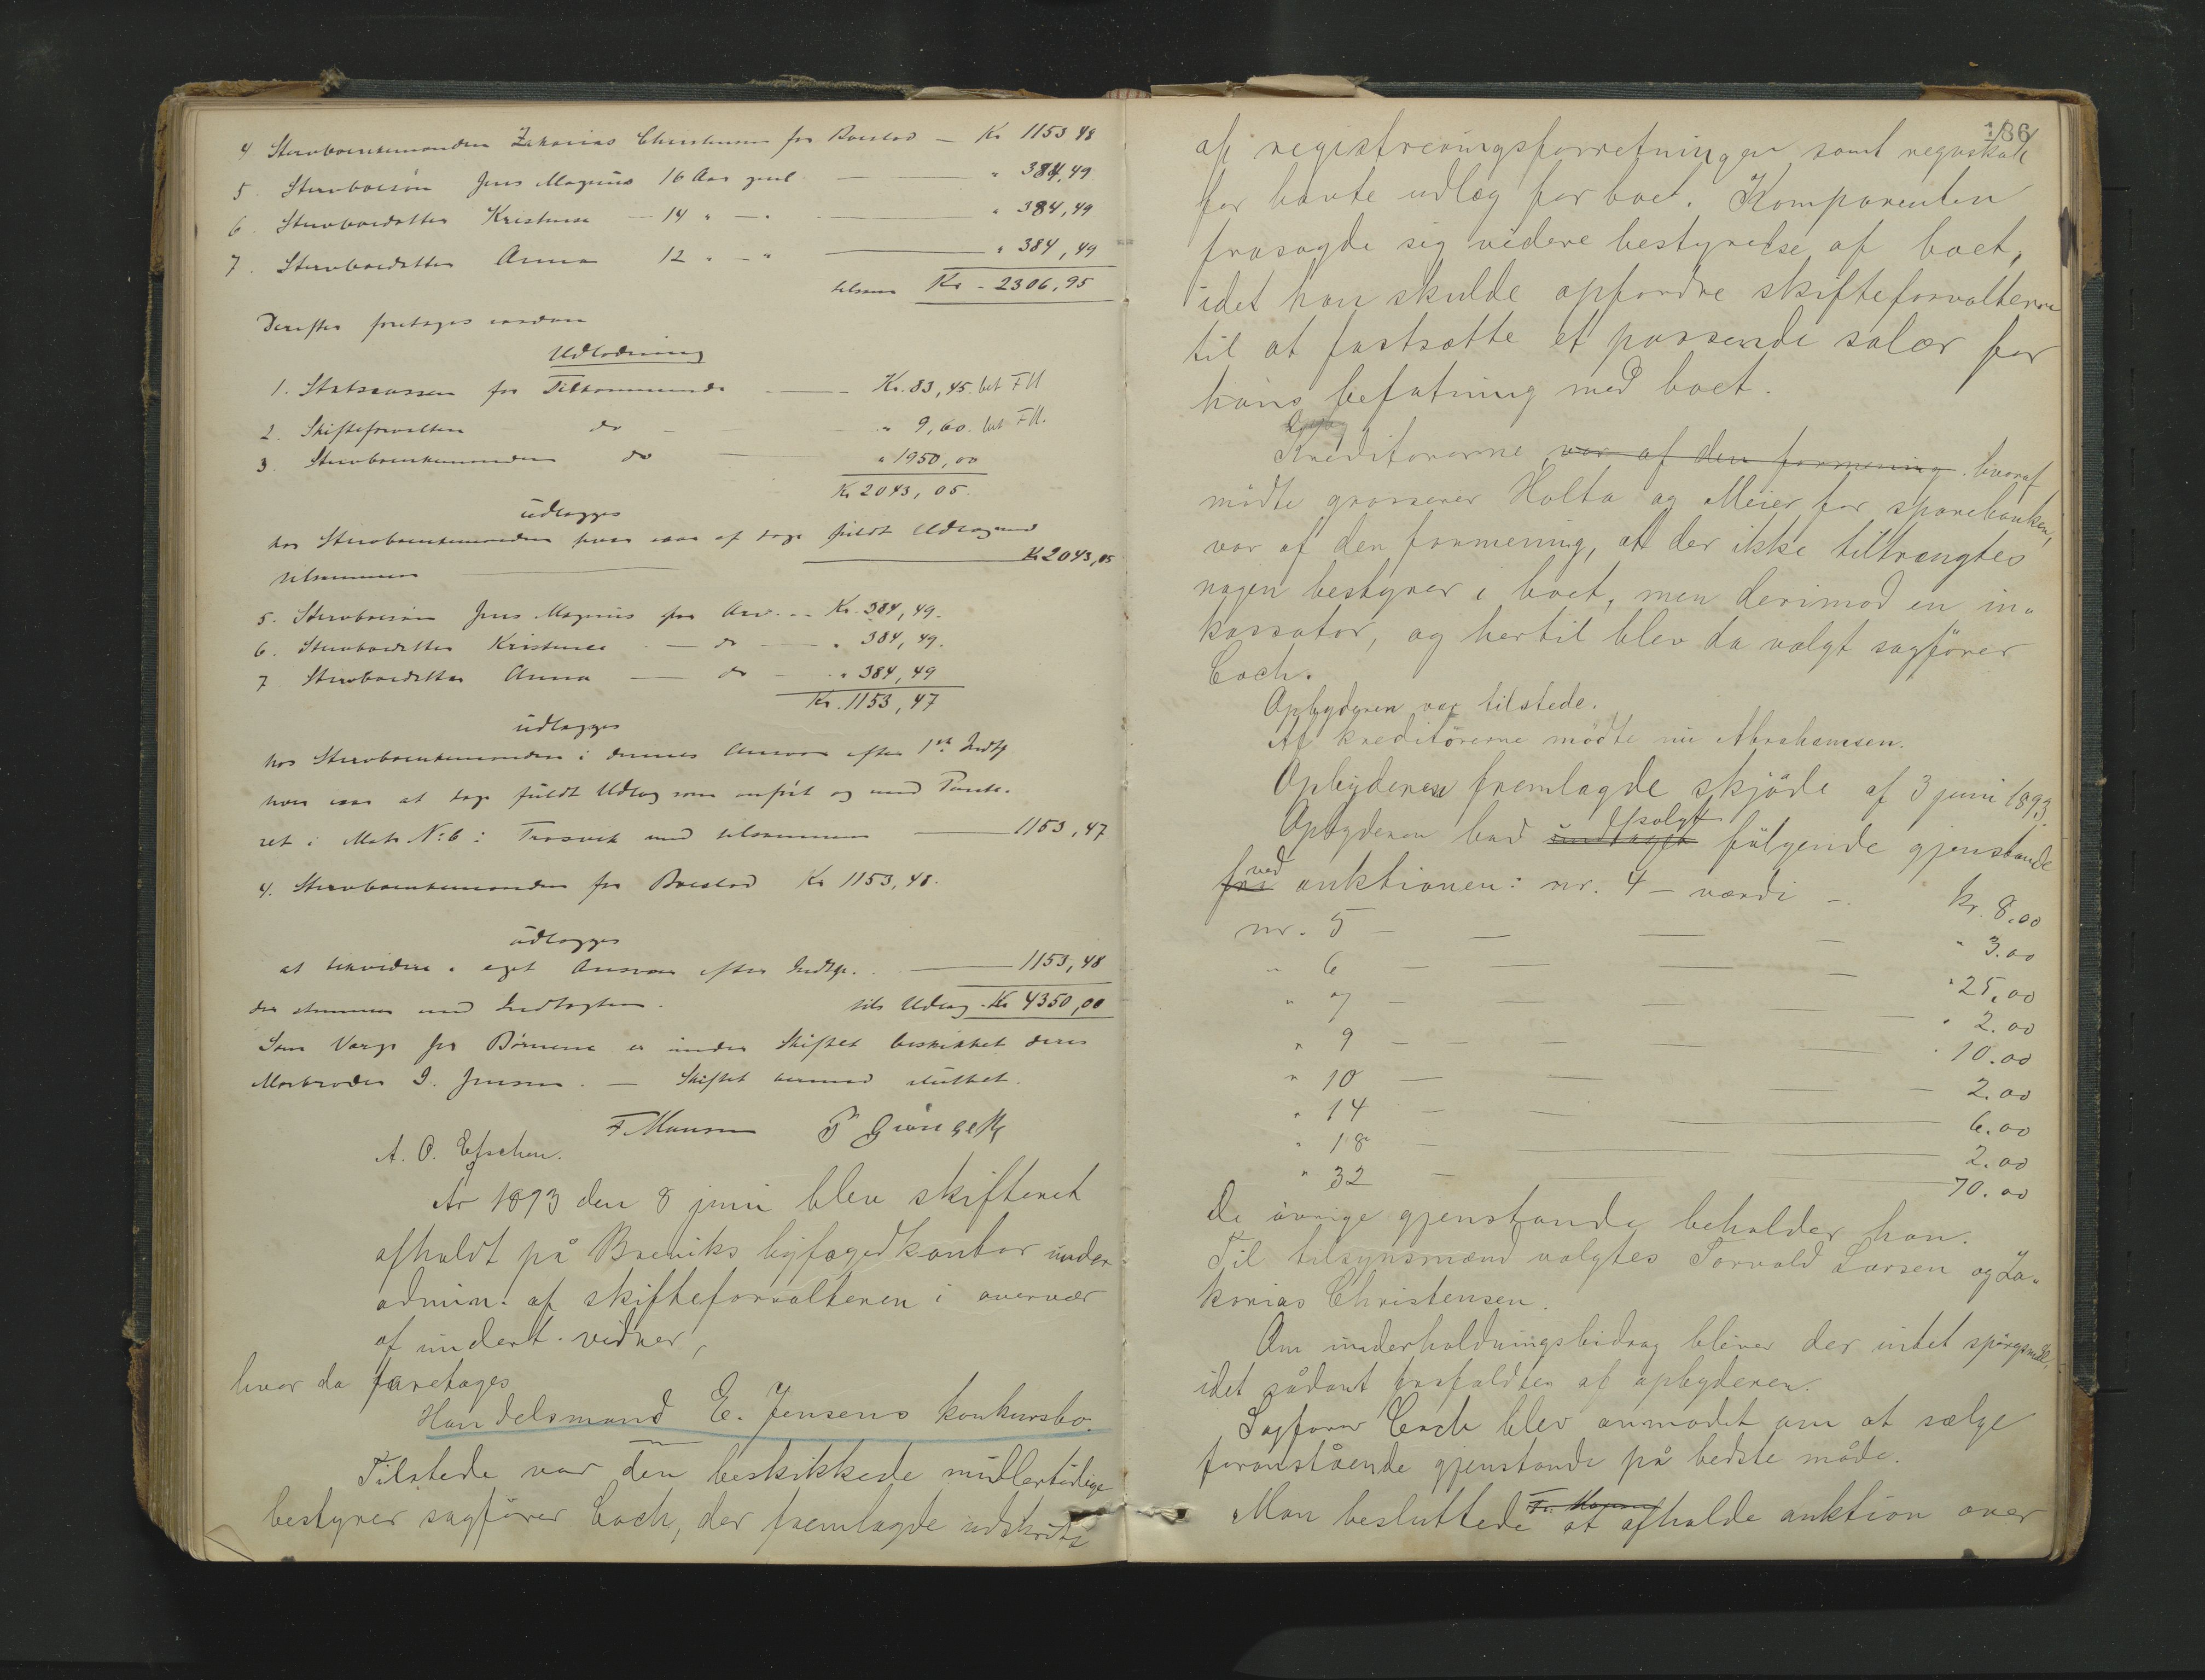 4 Stervboenkemanden Zakarias Christensen for Boeslod — Kr 1153 48
5. Stervboesøn Jens Magnus 16 Aar gml. — " 384,49
6. Stervboedatter Kristense — 14 " — " — " 384,49
7. Stervboedatter Anna 12 " — " — " 384,49
tilsam Kr - 2306,95
Derefter foretages saadan
Udlodning
1. Statscassen for Tilkommende — Kr. 83,45. bet FM
2. Skifteforvalteren do — " 9,60. bet FM.
3. Stervboenkemanden do — " 1950,00
Kr 2043,05.
udlægges
hos Stervboenkemanden hvor man af tage fuldt Udlæg med
tilsammen — Kr 2043,05
5. Stervboesøn Jens Magnus for Arv. — Kr. 384,49.
6. Stervboedatter Kristense — do — " 384,49.
7 Stervboedatter Anna — do — " 384,49
Kr. 1153,47
udlægges
hos Stervboenkemanden i dennes Ansvar efter 1ste Indtg
hvor man at tage fuldt Udlæg som anført og med Pante-
ret i Matr. No 6: Trosvik med tilsammen — 1153,47
4. Stervboenkemanden for Boeslod Kr 1153,48.
udlægges
at likvidere i eget Ansvar efter Indtg. — 1153,48
der stemmer med Indtægten. tils Udlæg. Kr 4350,00
Som Værge for Børnene er under Skiftet beskikket deres
Morbroder I. Jensen. — Skiftet hermed sluttet.
F Mansen P
A. O. Esschen.
År 1893 den 8 juni blev skifteret
afholdt på Breviks byfogedkontor under
admin. af skifteforvalteren i overvær
af undert. vidner,
hvor da foretages
Handelsmand E. Jensens konkursbo.
Tilstede var den beskikkede midlertidige
bestyrer sagfører Coch, der fremlagde udskrift
186
af registreringsforretningen samt regnskab
for havte udlæg for boet. Komparenten
frasagde sig videre bestyrelse af boet,
idet han skulde opfordre skifteforvalteren
til at fastsætte et passende salær for
hans befatning med boet.
Kreditorerne var af den formening hvoraf
mødte grosserer Holta og Meier for sparebanken,
var af den formening, at der ikke tiltrængtes
nogen bestyrer i boet, men derimod en in-
kassator, og hertil blev da valgt sagfører
Coch.
Opbyderen var tilstede.
Af kreditorerne mødte nu Abrahamsen.
Opbyderen fremlagde skjøde af 3 juni 1893.
Opbyderen bad undtaget solgt følgende gjenstande
fra ved auktionen: nr. 4 — værdi — kr. 8.00
nr. 5 — — — — " 3.00
" 6 — — — — " 25.00
" 7 — — — — " 2.00
" 9 — — — — " 10.00
" 10 — — — — 2.00
" 14 — — — 6.00
" 18 — — — 2.00
" 32 — — 70.00
De øvrige gjenstande beholder han.
Til tilsynsmænd valgtes Torvald Larsen og Za-
karias Christensen.
Om underholdningsbidrag bliver der intet spørgsmål,
idet sådant frafaldtes af opbyderen.
Sagfører Coch blev anmodet om at sælge
foranstående gjenstande på bedste måde.
Man besluttede at afholde auktion over